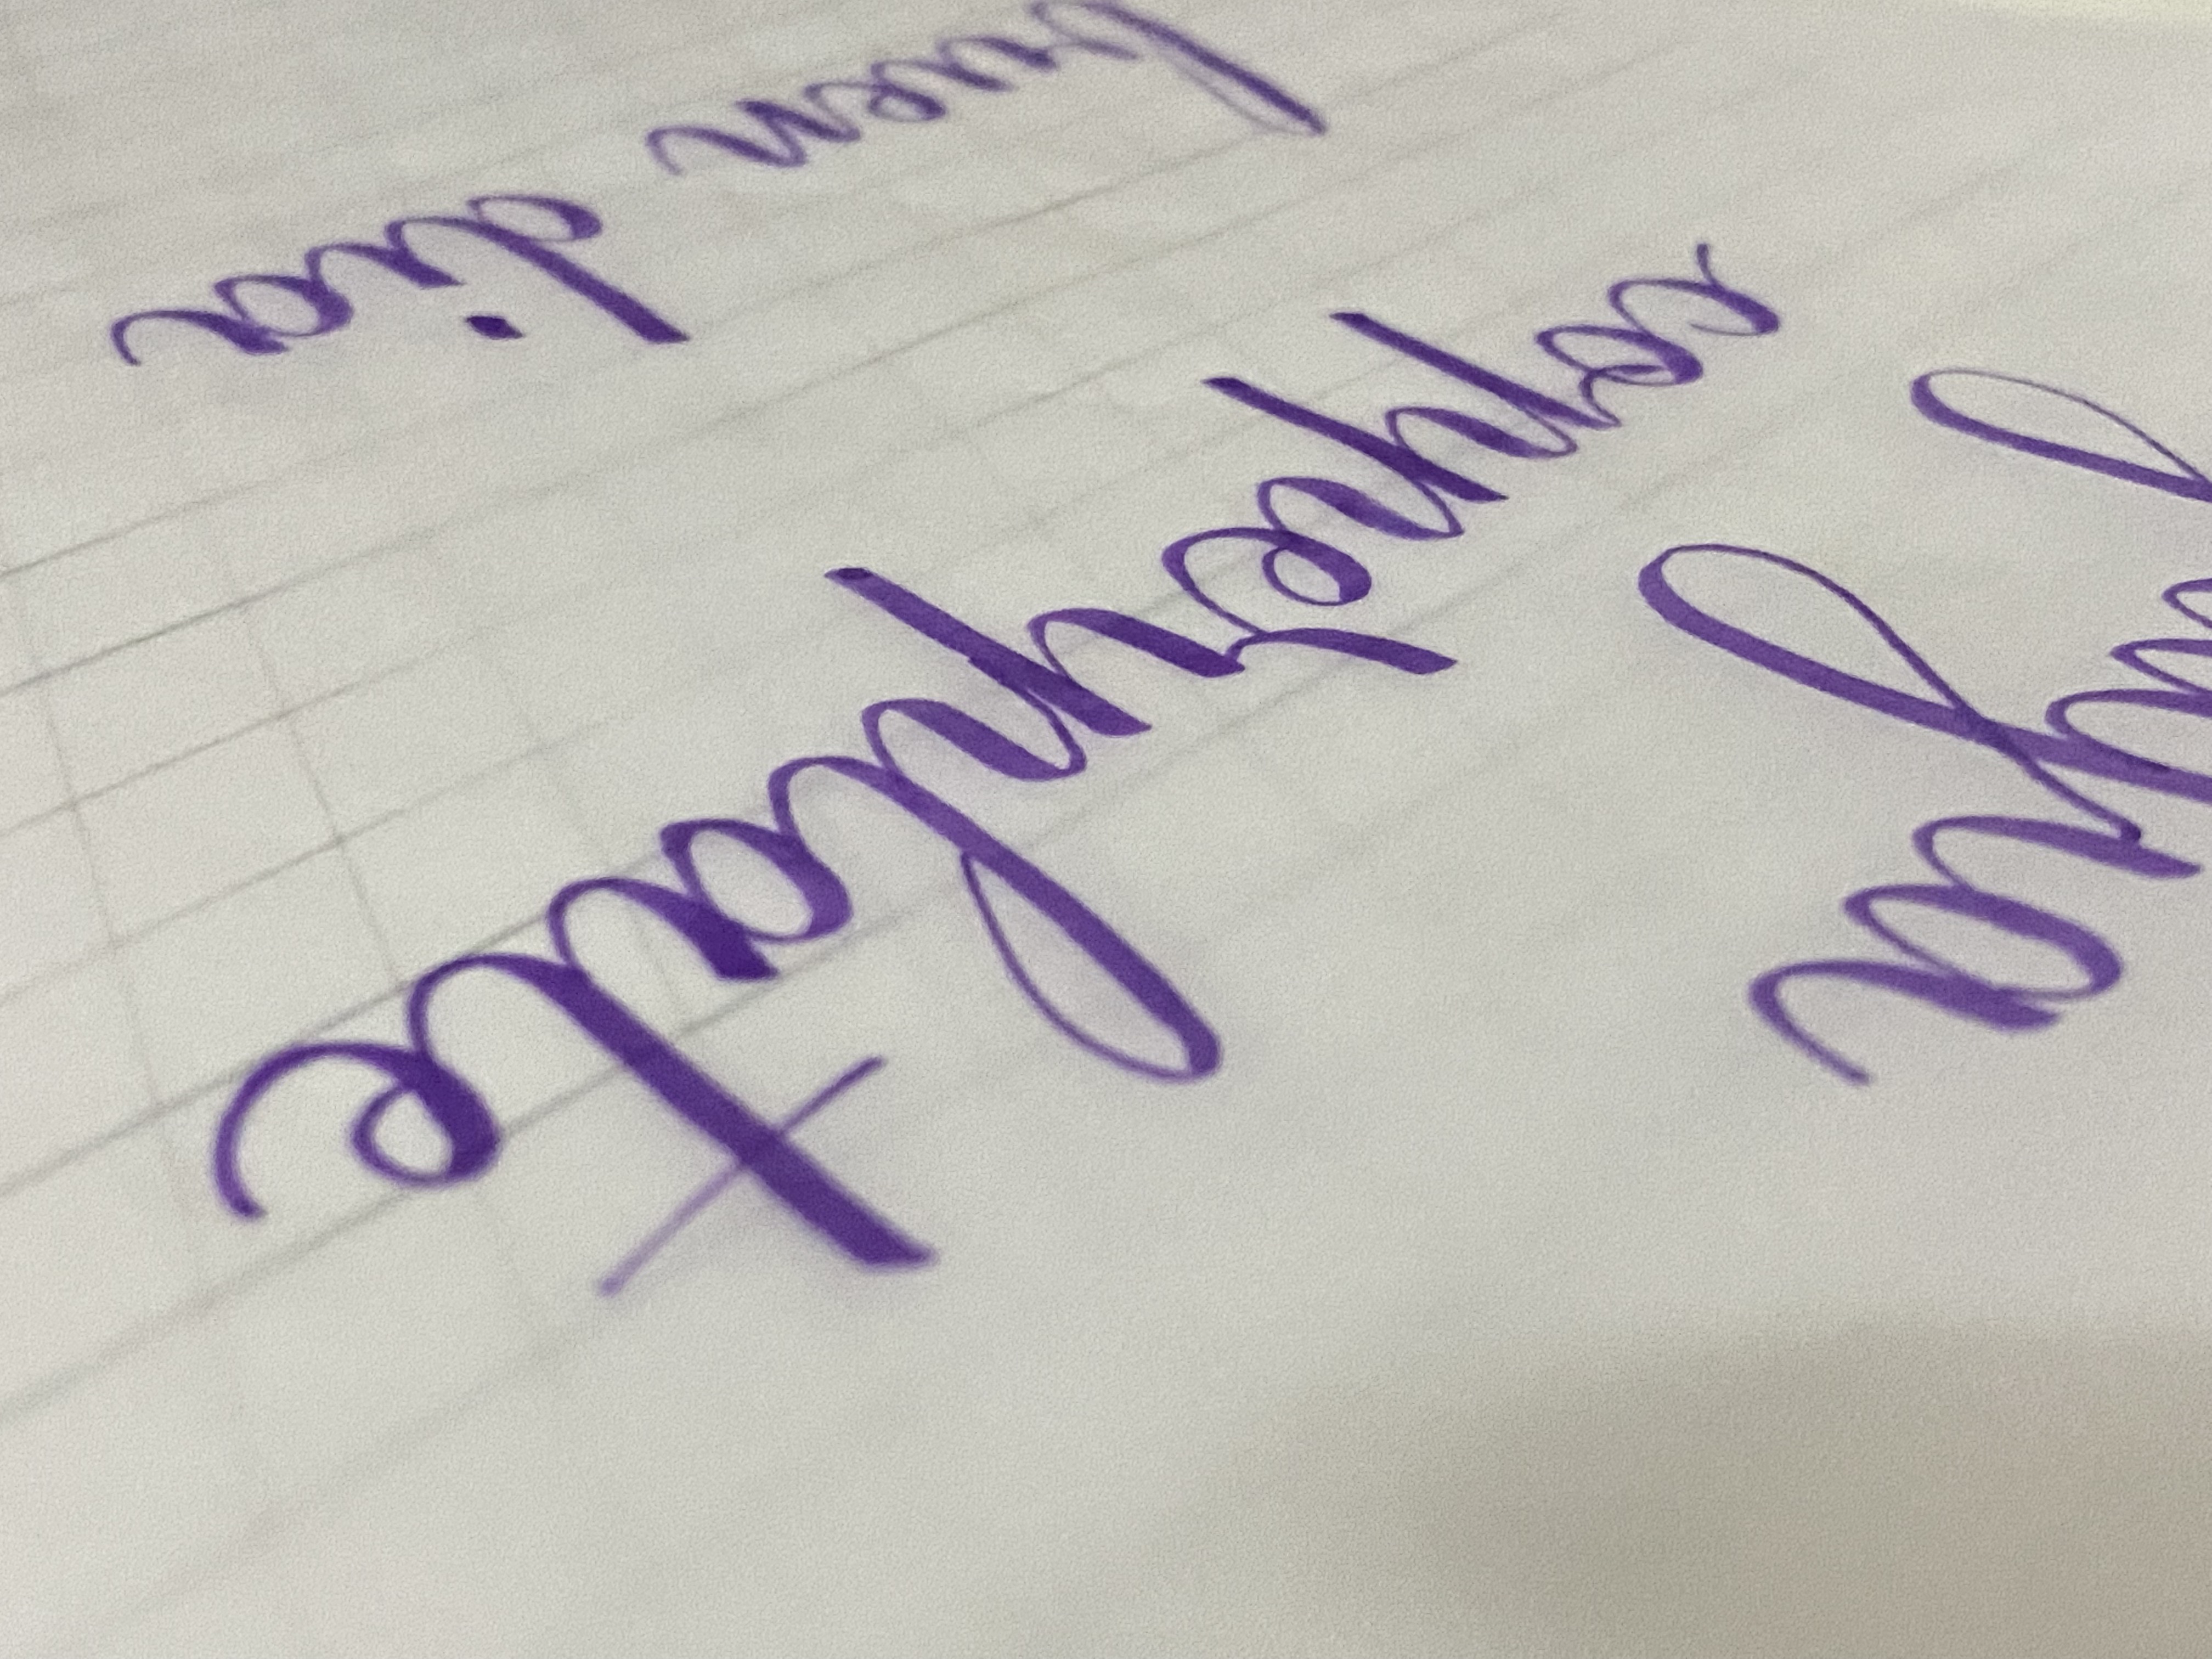 copperplate
buen dia